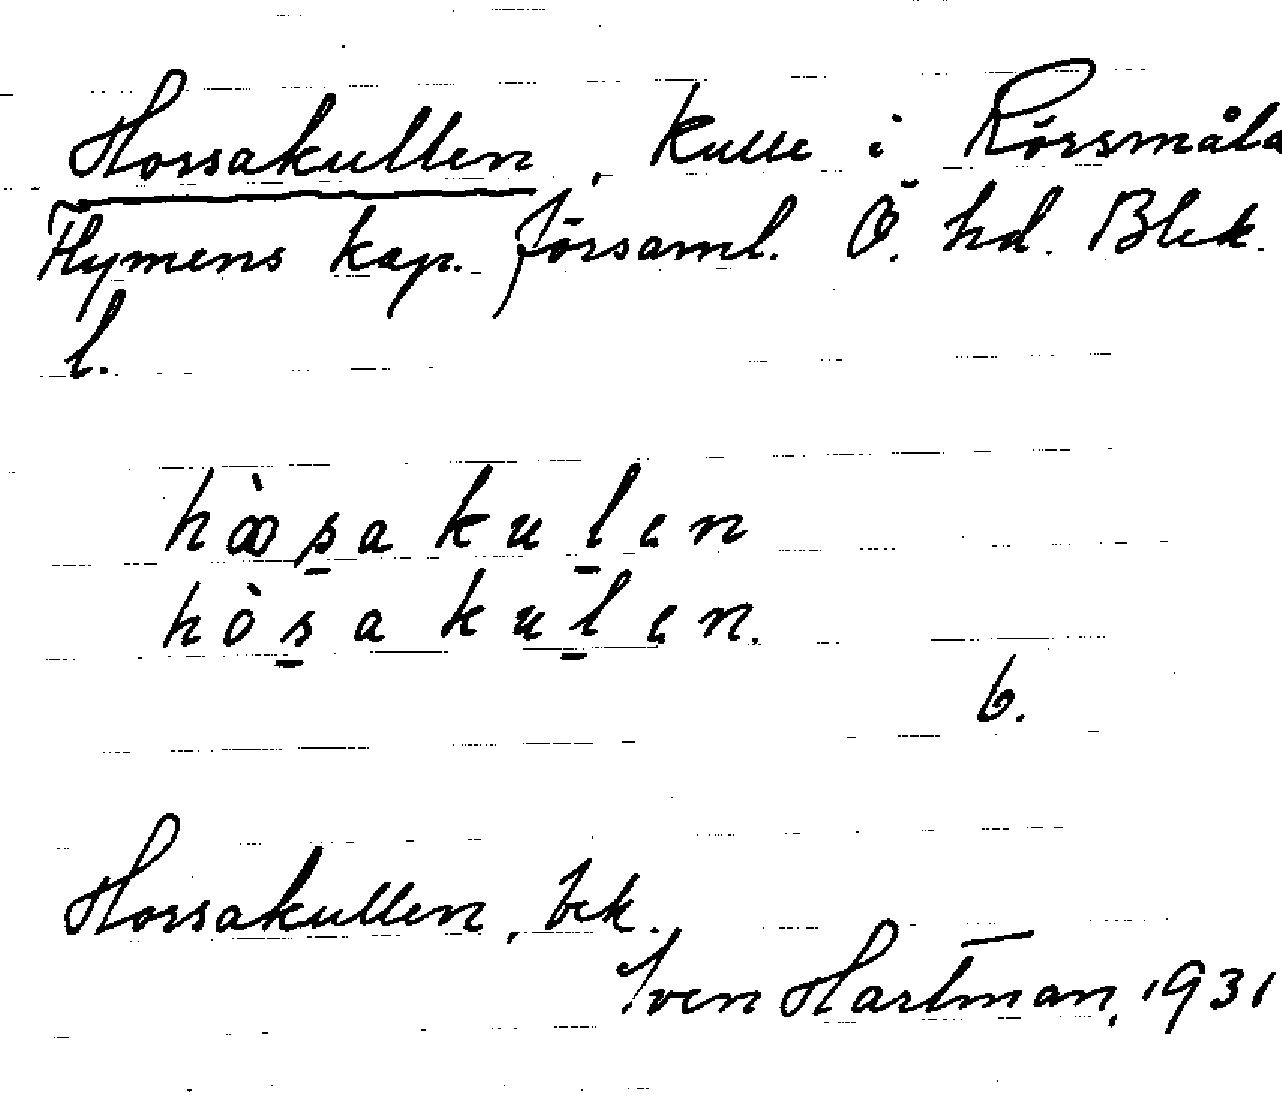 Horsakullen, kulle i Rörsmåla
Flymens kap. församl. Ö. hd. Blek.
l.
hòosakulen
hòsakulen.
b.
Horsakullen, bek.
Sven Hartman, 1931